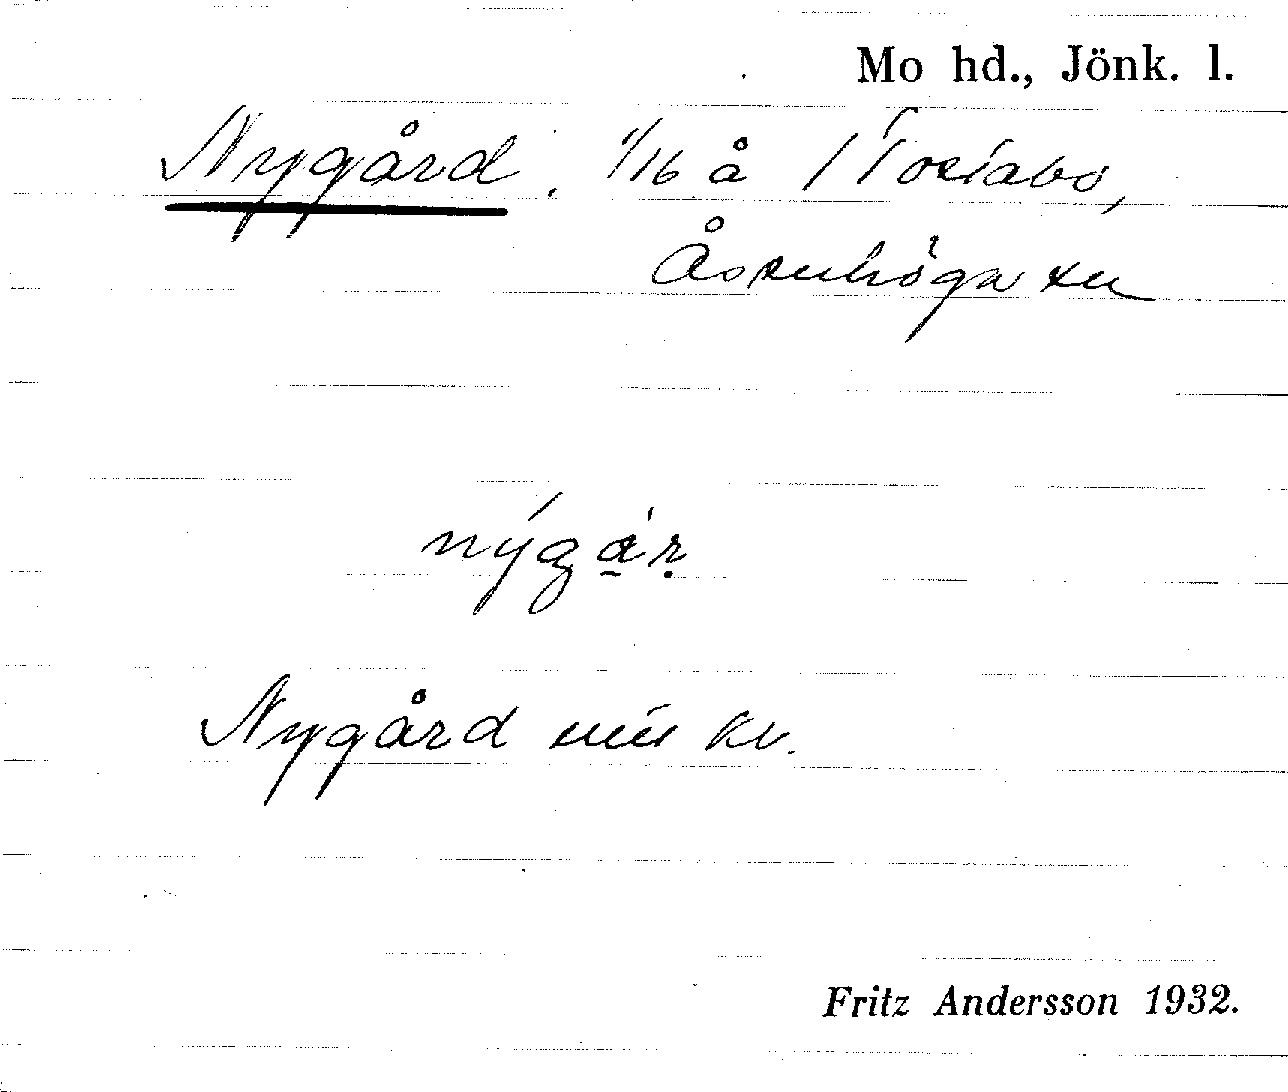 Mo hd., Jönk. l.
Nygård. 1/16 å 1 Toriabo,
Åsenhöga sn
nýgár
Nygård kv.
Fritz Andersson 1932.